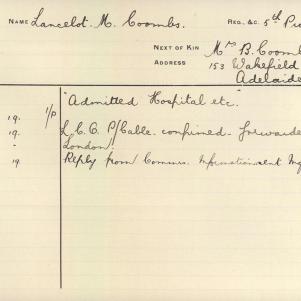 NAME Lancelot. M. Coombs. REG., &C. 5th Pi
NEXT OF KIN Mrs B. Coomb
ADDRESS 153 Wakefield
Adelaide
"Admitted Hospital etc"
19. 1/P L.C.O. P/Cable. confirmed. forwarde
19. London
19 Reply from Comms. Information sent